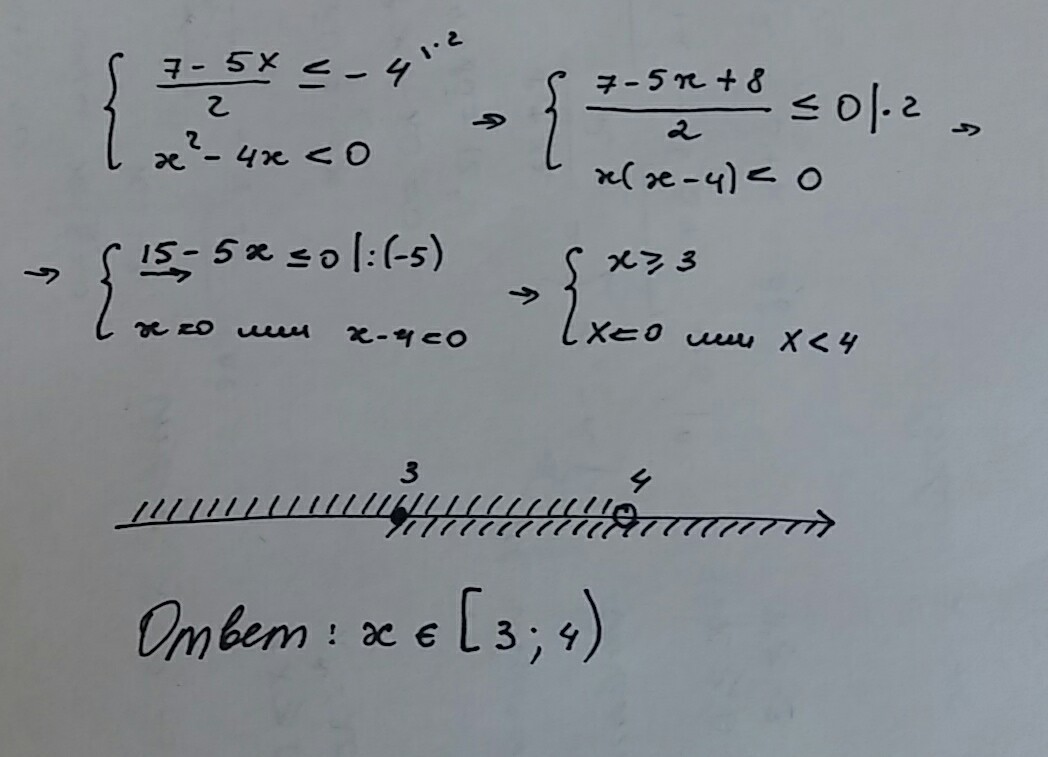 { (7 - 5x)/2 ≤ - 4 |·2 ; x² - 4x < 0 → { (7 - 5x + 8)/2 ≤ 0 |·2 ; x(x - 4) < 0 →
→ { 15 - 5x ≤ 0 |:(-5) ; x<0 или x-4<0 → { x ≥ 3 ; x<0 или x < 4
3 4
Ответ: x ∈ [3; 4)